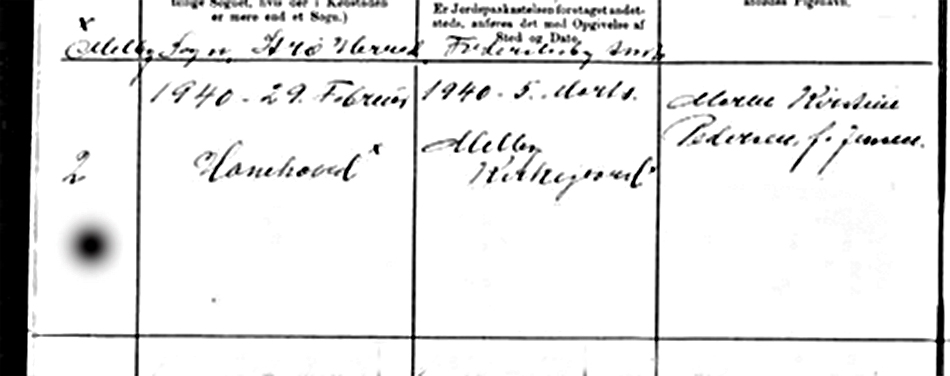 tilige Sognet, hvis der i Købstaden
er mere end et Sogn.)
Er Jordspaakastelsen foretaget andet-
steds, anføres det med Opgivelse af
Sted og Dato.
afdødes Pigenavn.
x
Melby Sogn, Strø Herred, Frederiksborg Amt
1940 - 29. Februar
1940 - 5. Marts.
Maren Kirstine
Pedersen, f. Jensen.
2
Hanehoved x
Melby
Kirkegaard